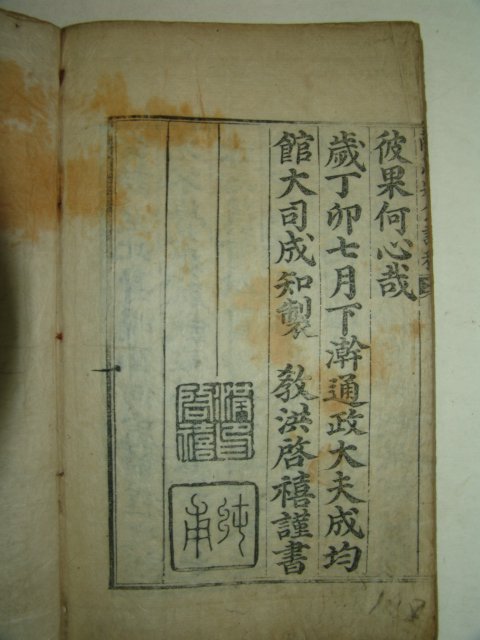 彼果何心哉
歲丁卯七月下澣通政大夫成均
館大司成知製 敎洪啓禧謹書
洪啓禧印
純甫